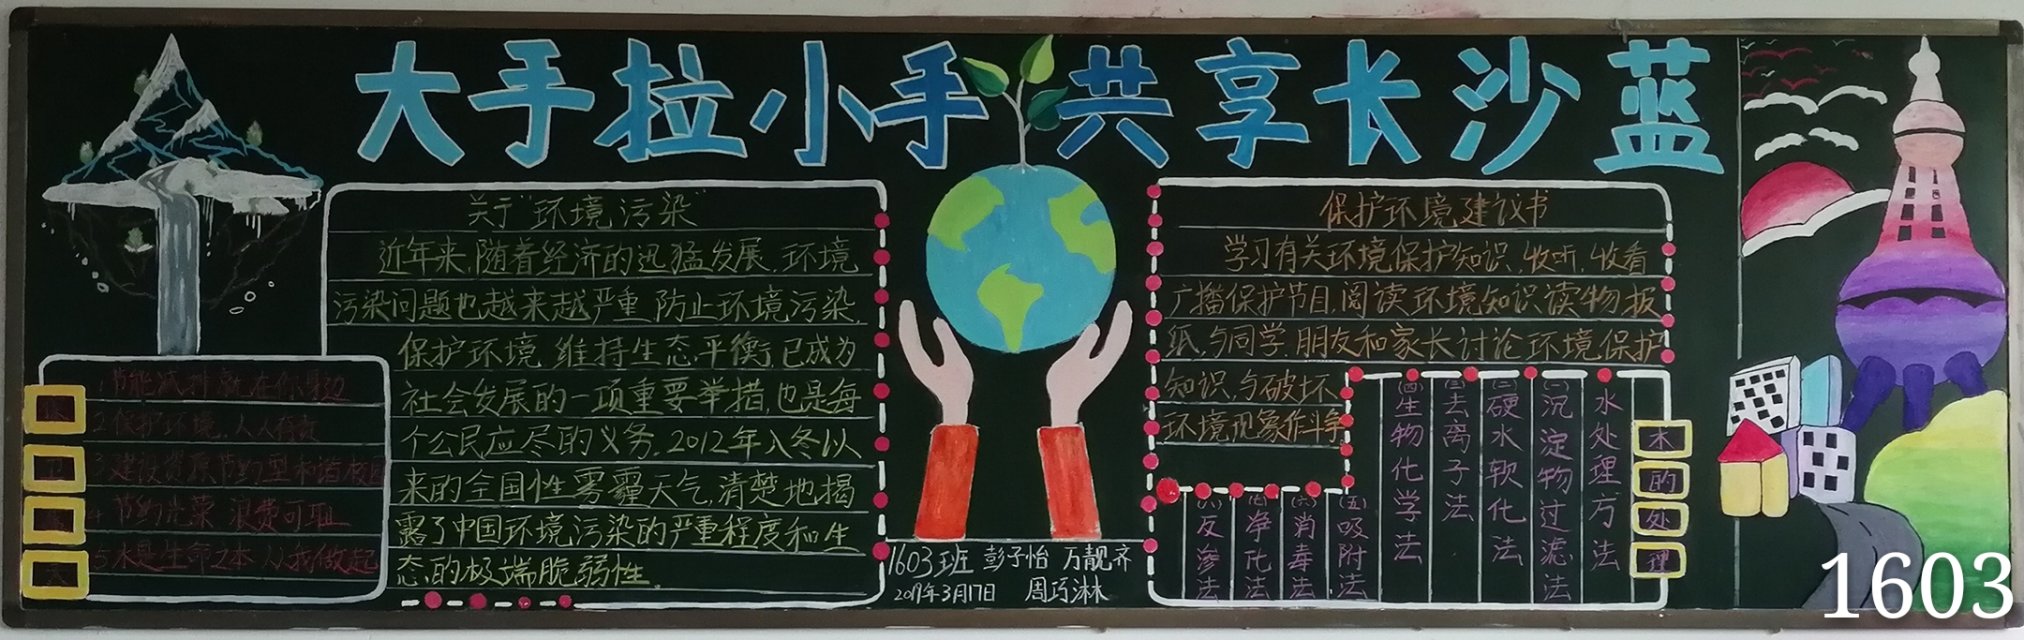 大手拉小手 共享长沙蓝
关于"环境污染"
近年来,随着经济的迅猛发展,环境
污染问题也越来越严重,防止环境污染,
保护环境,维持生态平衡,已成为
社会发展的一项重要举措,也是每
个公民应尽的义务。2012年入冬以
来的全国性雾霾天气,清楚地揭
露了中国环境污染的严重程度和生
态的极端脆弱性。
1.节能减排就在你身边
2.保护环境,人人有责
3.建设资源节约型和谐校园
4.节约光荣 浪费可耻
5.水是生命之本 从我做起
1603班 彭子怡 万靓齐
2019年3月17日 周巧淋
保护环境建议书
学习有关环境保护知识,收听,收看
广播保护节目,阅读环境知识读物报
纸,与同学,朋友和家长讨论环境保护
知识,与破坏
环境现象作斗争
水的处理
水处理方法
(一)沉淀物过滤法
(二)硬水软化法
(三)去离子法
(四)生物化学法
(五)吸附法
(六)消毒法
(七)净化法
(八)反渗法
1603